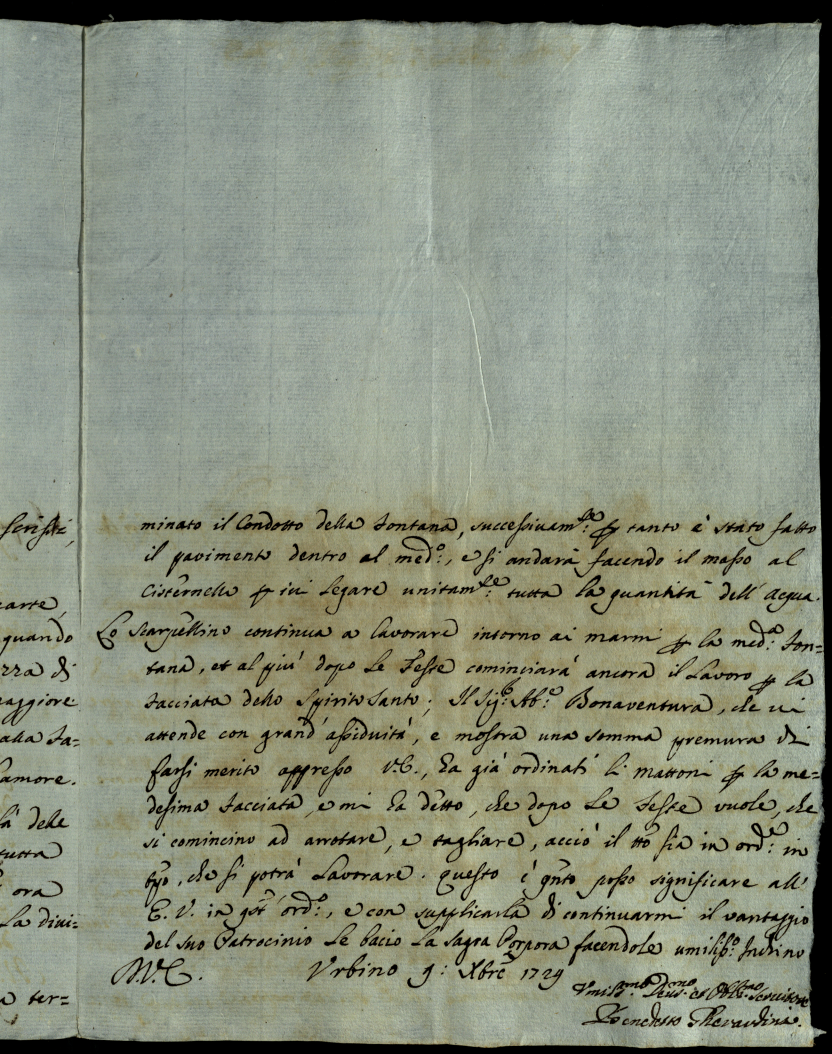 scrissi,
carte,
quando
zza di
maggiore
alla fa=
amore.
là dele
tutta
ora
La divi=
a ter=
minato il Condotto della Fontana, successivam.te: p tanto è stato fatto
il pavimento dentro al med.o:, e si andarà facendo il masso al
Cisternello p ivi legare unitam.te: tutta la quantità dell'acqua.
Lo Scarpellino continua a lavorare intorno ai marmi p la med.a: Fon=
tana, et al più dopo le Feste cominciarà ancora il Lavoro p la
facciata dello Spirito Santo; Il Sig.r: Ab.e: Bonaventura, che vi
attende con grand'assiduità, e mostra una somma premura di
farsi merito appresso V.E., ha già ordinati li mattoni p la me=
desima facciata, e mi ha detto, che dopo le Feste vuole, che
si comincino ad arrotare, e tagliare, acciò il tto sia in ord.e: in
tpo, che si potrà Lavorare. questo è qnto posso significare all'
E. V. in qst'ord.o:, e con supplicarla di continuarmi il vantaggio
del suo Patrocinio le bacio La Sagra Porpora facendole umiliss.o: Inchino
Urbino 9: Xbre 1729
Umiliss.mo Dev.mo et Obb.mo Servitore
Benedetto